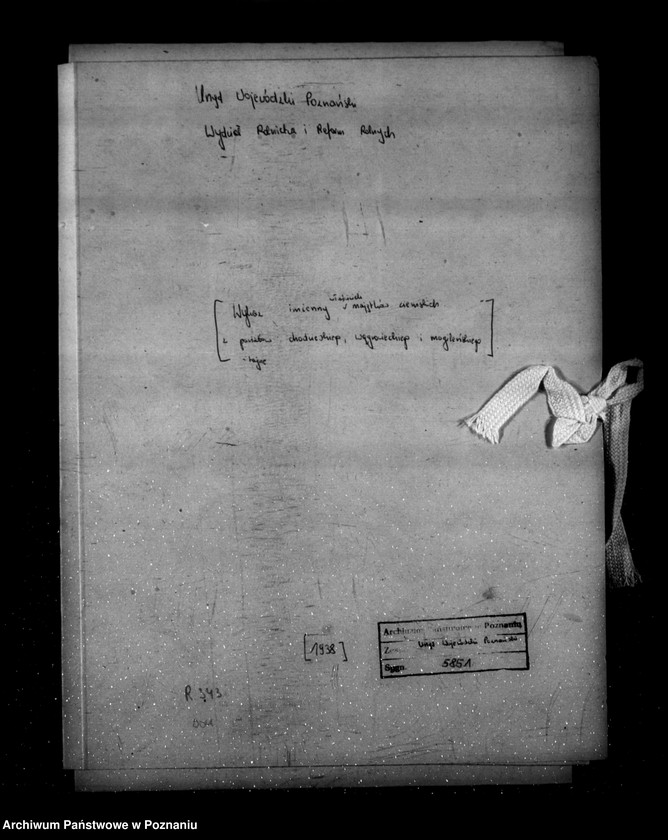 Urząd Wojewódzki Poznański
Wydział Rolnictwa i Reform Rolnych
[Wykaz imienny właścicieli majątków ziemskich
z powiatów chodzieskiego, wągrowieckiego i mogileńskiego]
[1938]
Archiwum Państwowe w Poznaniu
Urząd Wojewódzki Poznański
Sygn. 5851
R 343
Archiwum Państwowe w Poznaniu